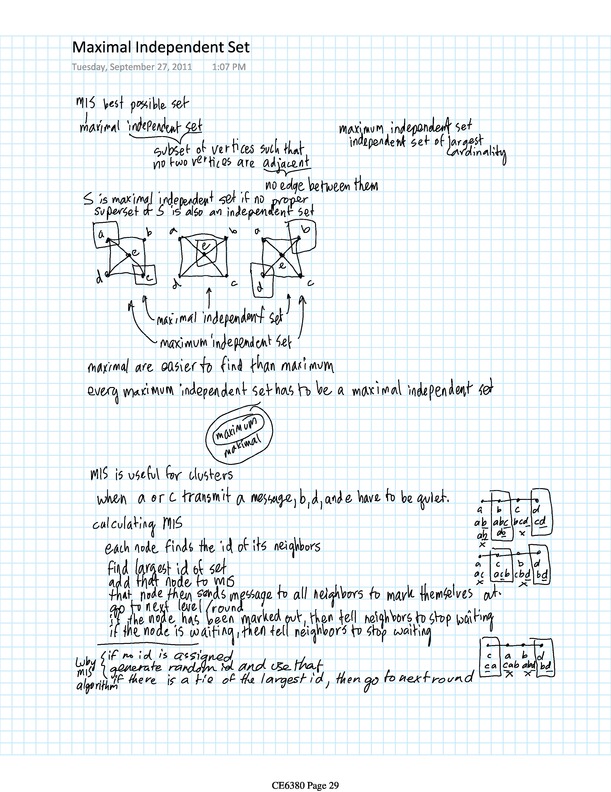 Maximal Independent Set
Tuesday, September 27, 2011 1:07 PM
MIS best possible set
maximal independent set
subset of vertices such that
no two vertices are adjacent
no edge between them
maximum independent set
independent set of largest
cardinality
S is maximal independent set if no proper
superset of S is also an independent set
a b e d c
a b e d c
a b e d c
maximal independent set
maximum independent set
maximal are easier to find than maximum
every maximum independent set has to be a maximal independent set
maximum
maximal
MIS is useful for clusters
when a or c transmit a message, b, d, and e have to be quiet.
calculating MIS
each node finds the id of its neighbors
find largest id of set
add that node to MIS
that node then sends message to all neighbors to mark themselves out.
go to next level/round
if the node has been marked out, then tell neighbors to stop waiting
if the node is waiting, then tell neighbors to stop waiting
a b c d
ab abc bcd cd
ab
x x
a c b d
ac acb cbd bd
x x
c a b d
ca cab abd bd
x x
Luby
MIS
algorithm
if no id is assigned
generate random id and use that
if there is a tie of the largest id, then go to next round
CE6380 Page 29